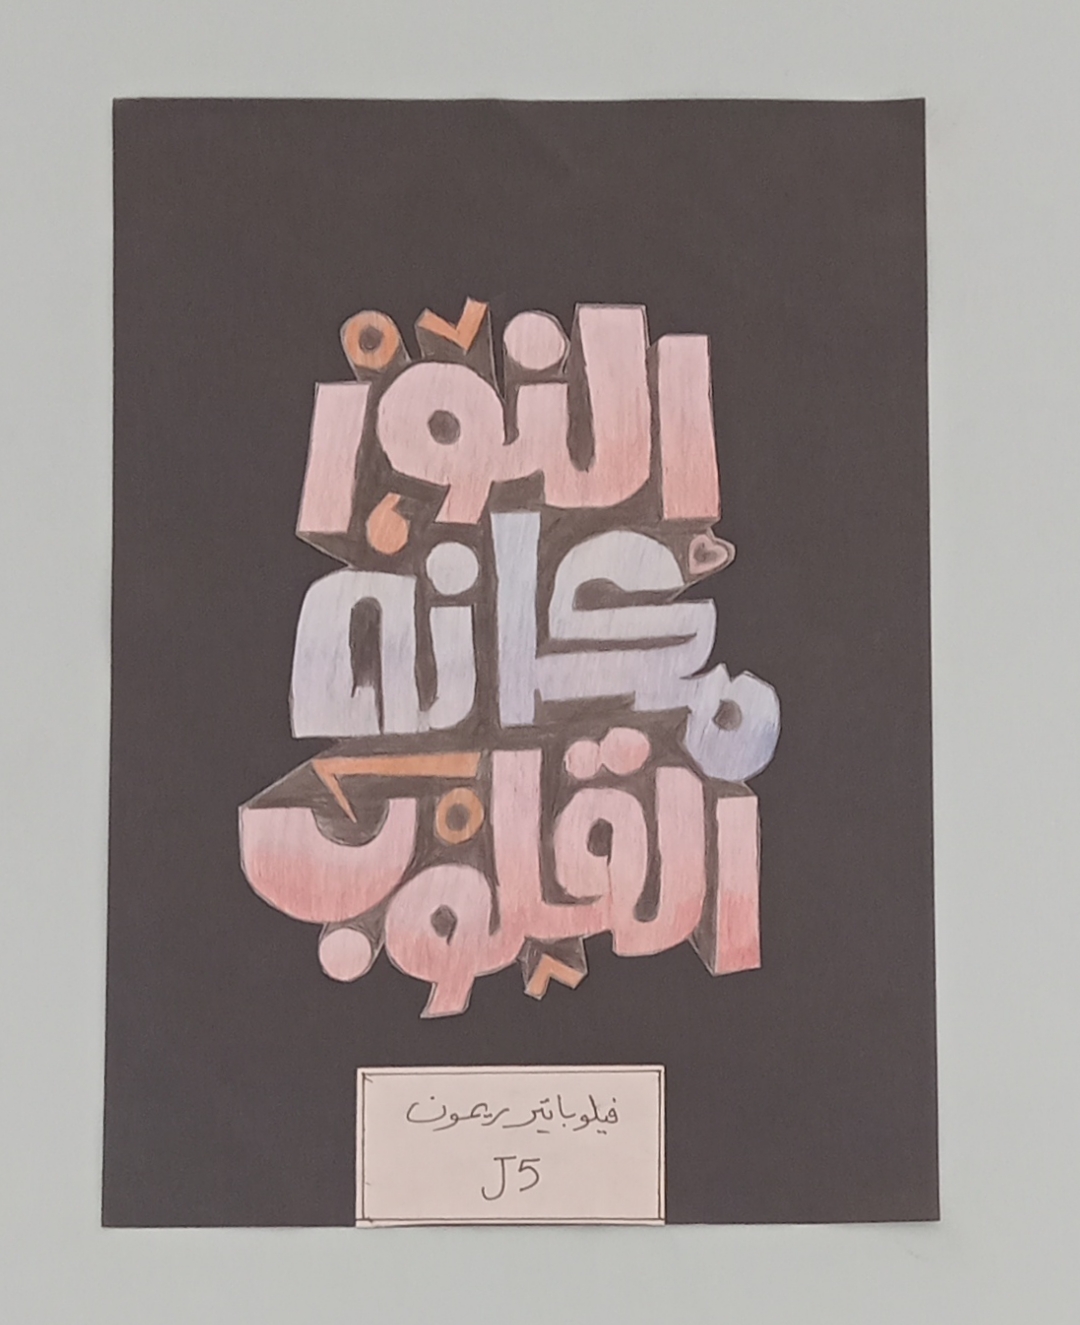 النور
مكانه
القلوب
فيلوباتير ريمون
J5